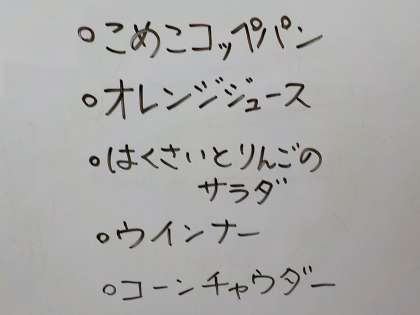 ○こめこコッペパン
○オレンジジュース
○はくさいとりんごの
サラダ
○ウインナー
○コーンチャウダー